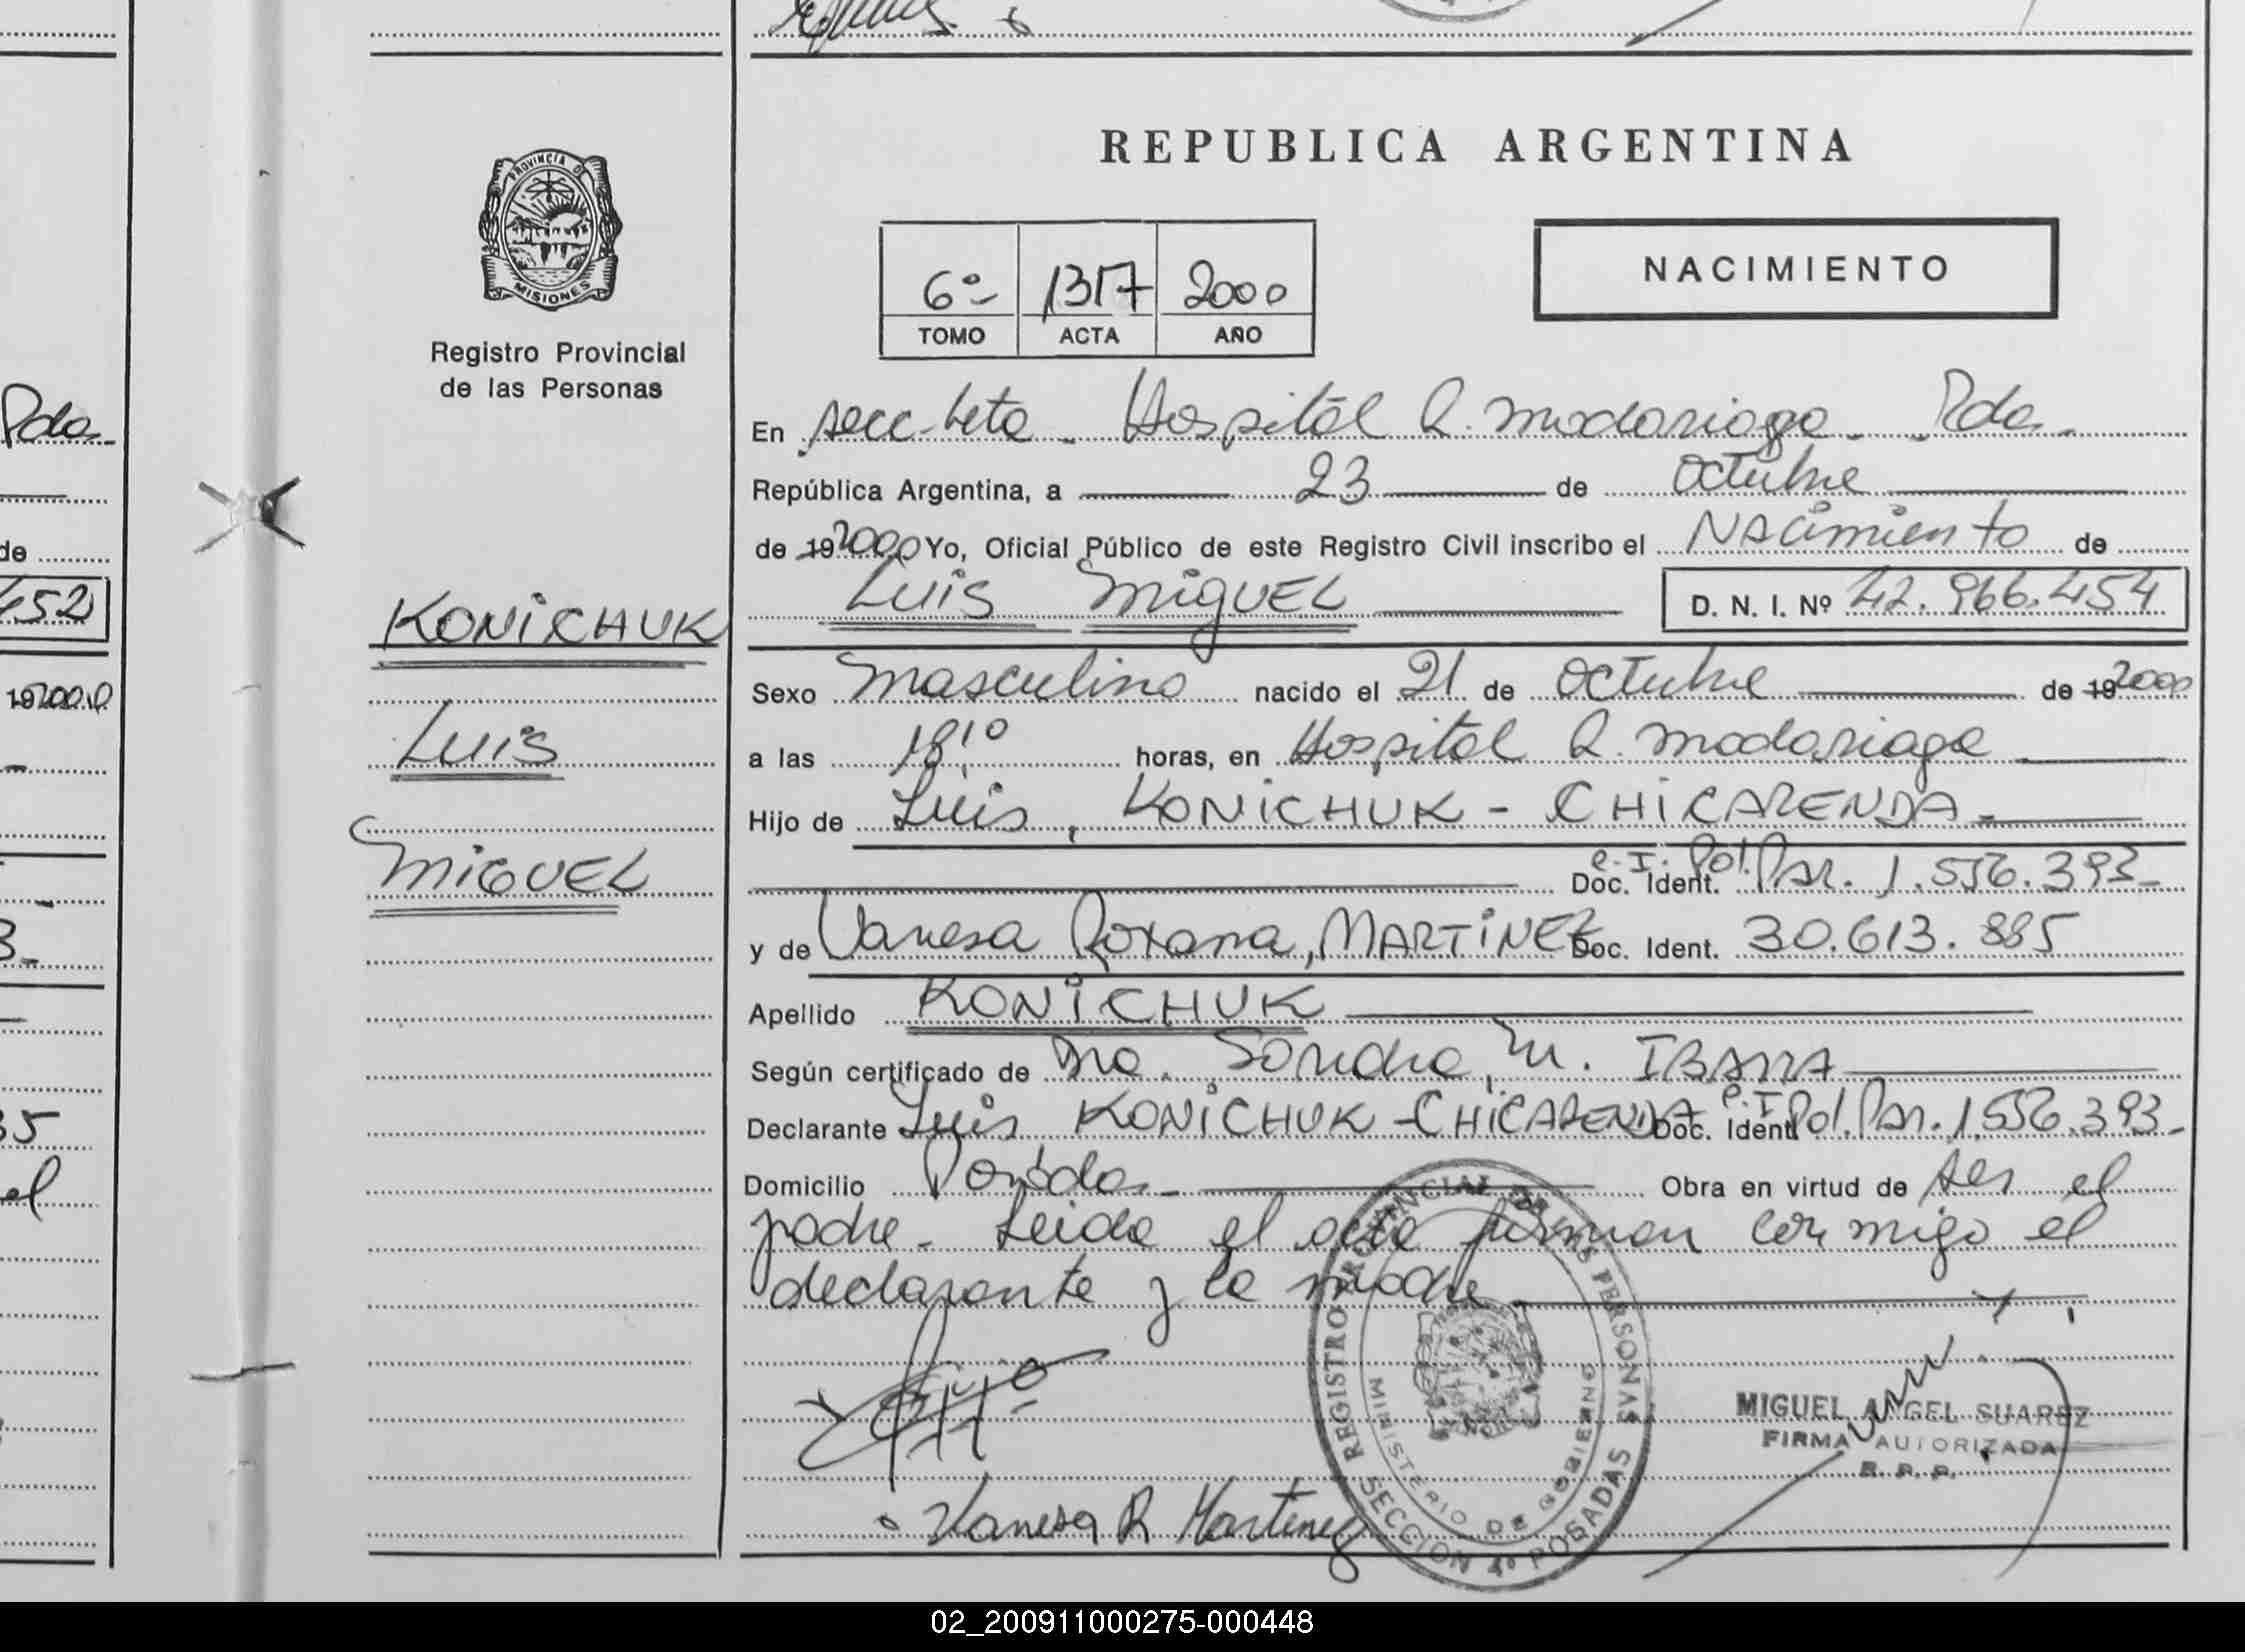 REPUBLICA ARGENTINA
PROVINCIA DE
MISIONES
Registro Provincial
de las Personas
6º
1317
2000
TOMO
ACTA
AÑO
NACIMIENTO
Pda.
En secc. 4ta - Hospital R. Madariaga - Pdas.
República Argentina, a 23 de Octubre
de 19 2000 Yo, Oficial Público de este Registro Civil inscribo el Nacimiento de
Luis Miguel D. N. I. Nº 42.966.454
de
452
KONICHUK
Luis
MIGUEL
19 2000
Sexo Masculino nacido el 21 de Octubre de 19 2000
a las 18,10 horas, en Hospital R. Madariaga
Hijo de Luis, KONICHUK - CHICARENDA -
C.I. Pol.
Doc. Ident. Par. 1.556.393-
y de Vanesa Roxana, MARTINEZ Doc. Ident. 30.613.885
Apellido KONICHUK
Según certificado de Dra. Sandra M.
Declarante Luis KONICHUK - CHICARENDA C.I. Doc. Ident. Pol. Par. 1.556.393-
35
Domicilio Posadas - Obra en virtud de ser el
el
padre - Leida el acta firman conmigo el
declarante y la madre
REGISTRO PROVINCIAL DE LAS PERSONAS
MINISTERIO DE GOBIERNO
SECCION 4º POSADAS
MIGUEL ANGEL SUAREZ
FIRMA AUTORIZADA
R. P. P.
Vanesa R Martinez
02_200911000275-000448